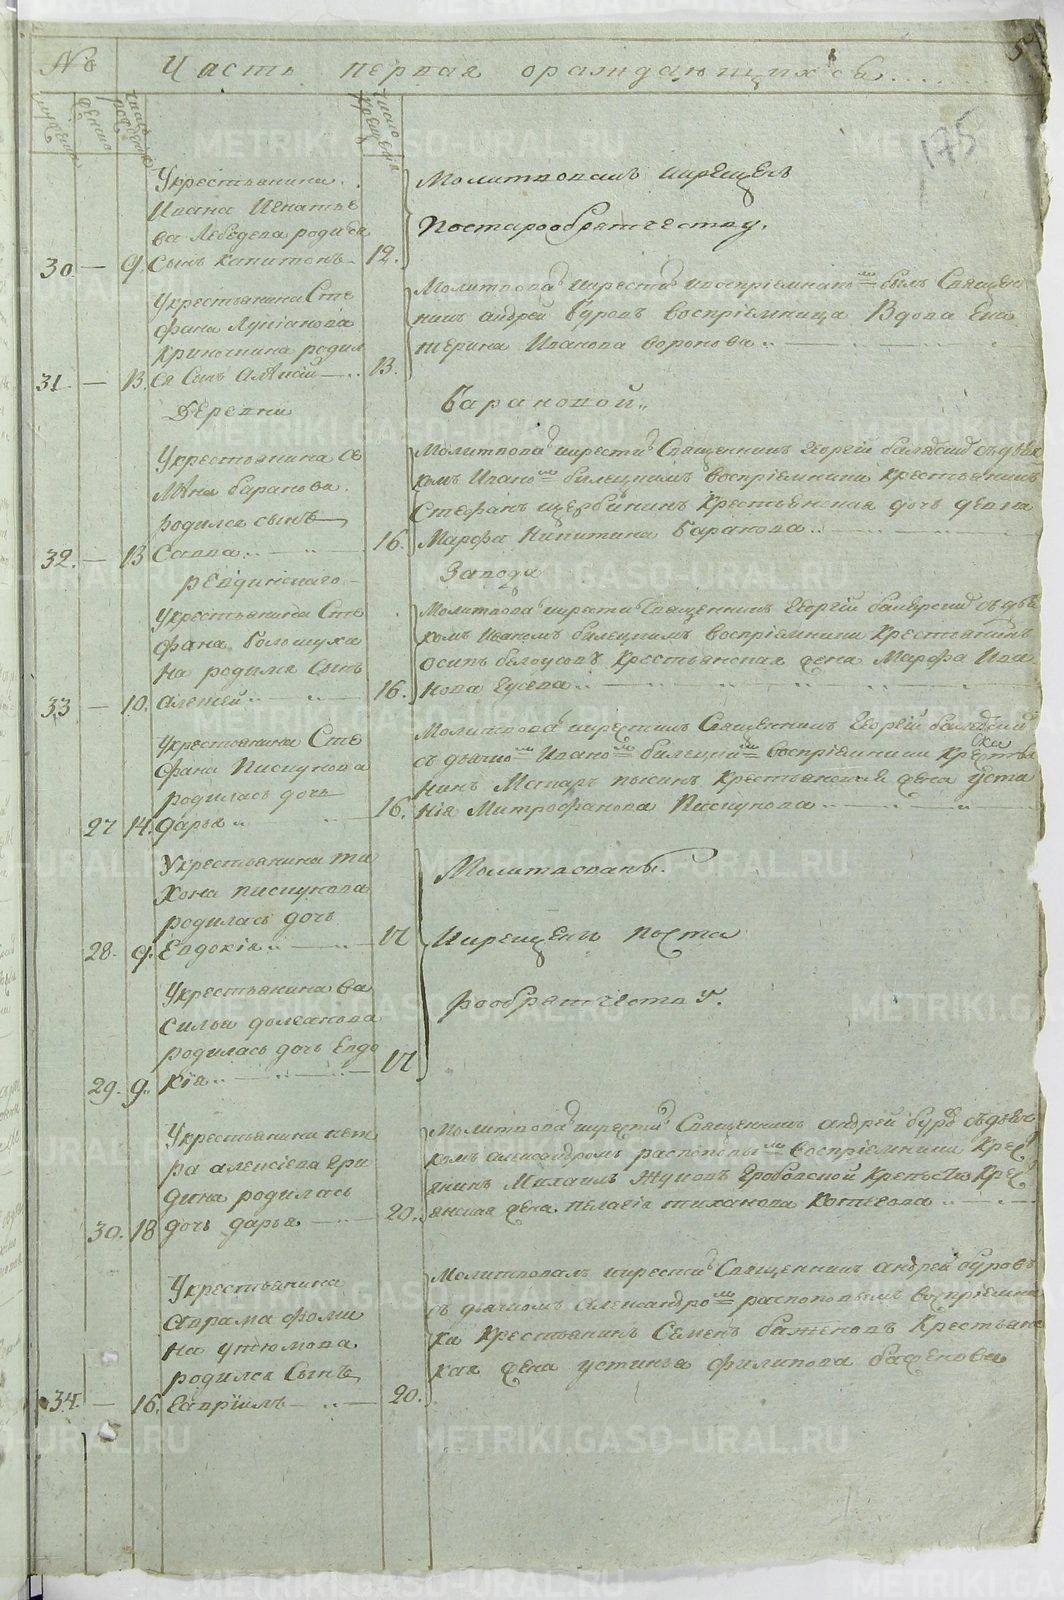 5
№ Часть первая ораждающихся
175
мужеска женска число рождения число крещения
Укрестьянина
Ивана Игнатье
ва Лебедева родился
30 — 9. Сынъ Капитонъ 12.
Молитвованъ икрещенъ
Постарообрятчеству.
Укрестьянина Сте
фана Лукіанова
Криночкина родил
31. — 13. ся Сынъ Алѣксій — 13.
Молитвовалъ икрестилъ ивоспріемникомъ былъ Священ
никъ андрей Буровъ воспріемница Вдова Ека
терина Иванова воронова
Деревни Барановой
Укрестьянина Се
мѣна баранова
родился сынъ
32. — 13 Савва 16.
Молитвовалъ икрестилъ Священникъ Георгій съдьяч
комъ Иваномъ билецкимъ воспріемники крестьянинъ
Стефанъ щербининъ Крестьянская дочь девка
Марфа Никитина Баранова
ревдинскаго Завода
Укрестьянина Сте
фана болошухи
на родился Сынъ
33 — 10. алексей 16.
Молитвовалъ икрестилъ Священникъ Георгій съдья
комъ Иваномъ билецкимъ воспріемники Крестьянинъ
Осипъ белоусовъ Крестьянская жена Марфа Ива
нова Гусева
Укрестьянина Сте
фана Пискунова
родилась дочь
27 14. дарья 16.
Молитвовалъ икрестилъ Священникъ Георгій
съ дьячкомъ Иваномъ билецкимъ воспріемники Крестья
нинъ Крестьянская жена Уста
нія Митрофанова Пискунова
Укрестьянина ти
хона пискунова
родилась дочь
28. 9. Евдокія 17
Молитвованы
Икрещены поста
рообрятчеству.
Укрестьянина ва
силья долганова
родилась дочь Евдо
29. 9. кія 17
Укрестьянина пет
ра алексіева ери
дина родилась
30. 18 дочь дарья — 20.
Молитвовалъ икрестилъ Священникъ андрей буровъ съдьяч
комъ александромъ распоповымъ воспріемники Крест
янинъ Михаилъ Жуковъ Гробовской Крепости Крест
янская жена пелагія тиханова Котегова
Укрестьянина
аврама фоми
на утюмова
родился Сынъ
34. — 16. Гавріилъ — 20.
Молитвовалъ икрестилъ Священникъ андрей буровъ
съ дьячкомъ александромъ распоповымъ воспріемни
ки Крестьянинъ Семенъ баженовъ Крестьянс
кая жена устинья филипова баженова